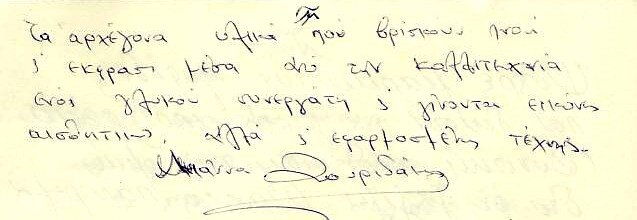 Τα αρχέγονα υλικά που βρίσκουν πνοή
ς εκφραση μέσα από την καλλιτεχνία
ενός γλυκού συνεργάτη ς γίνονται εικόνες
αισθητικής, αλλά ς εφαρμοσμένης τέχνης.